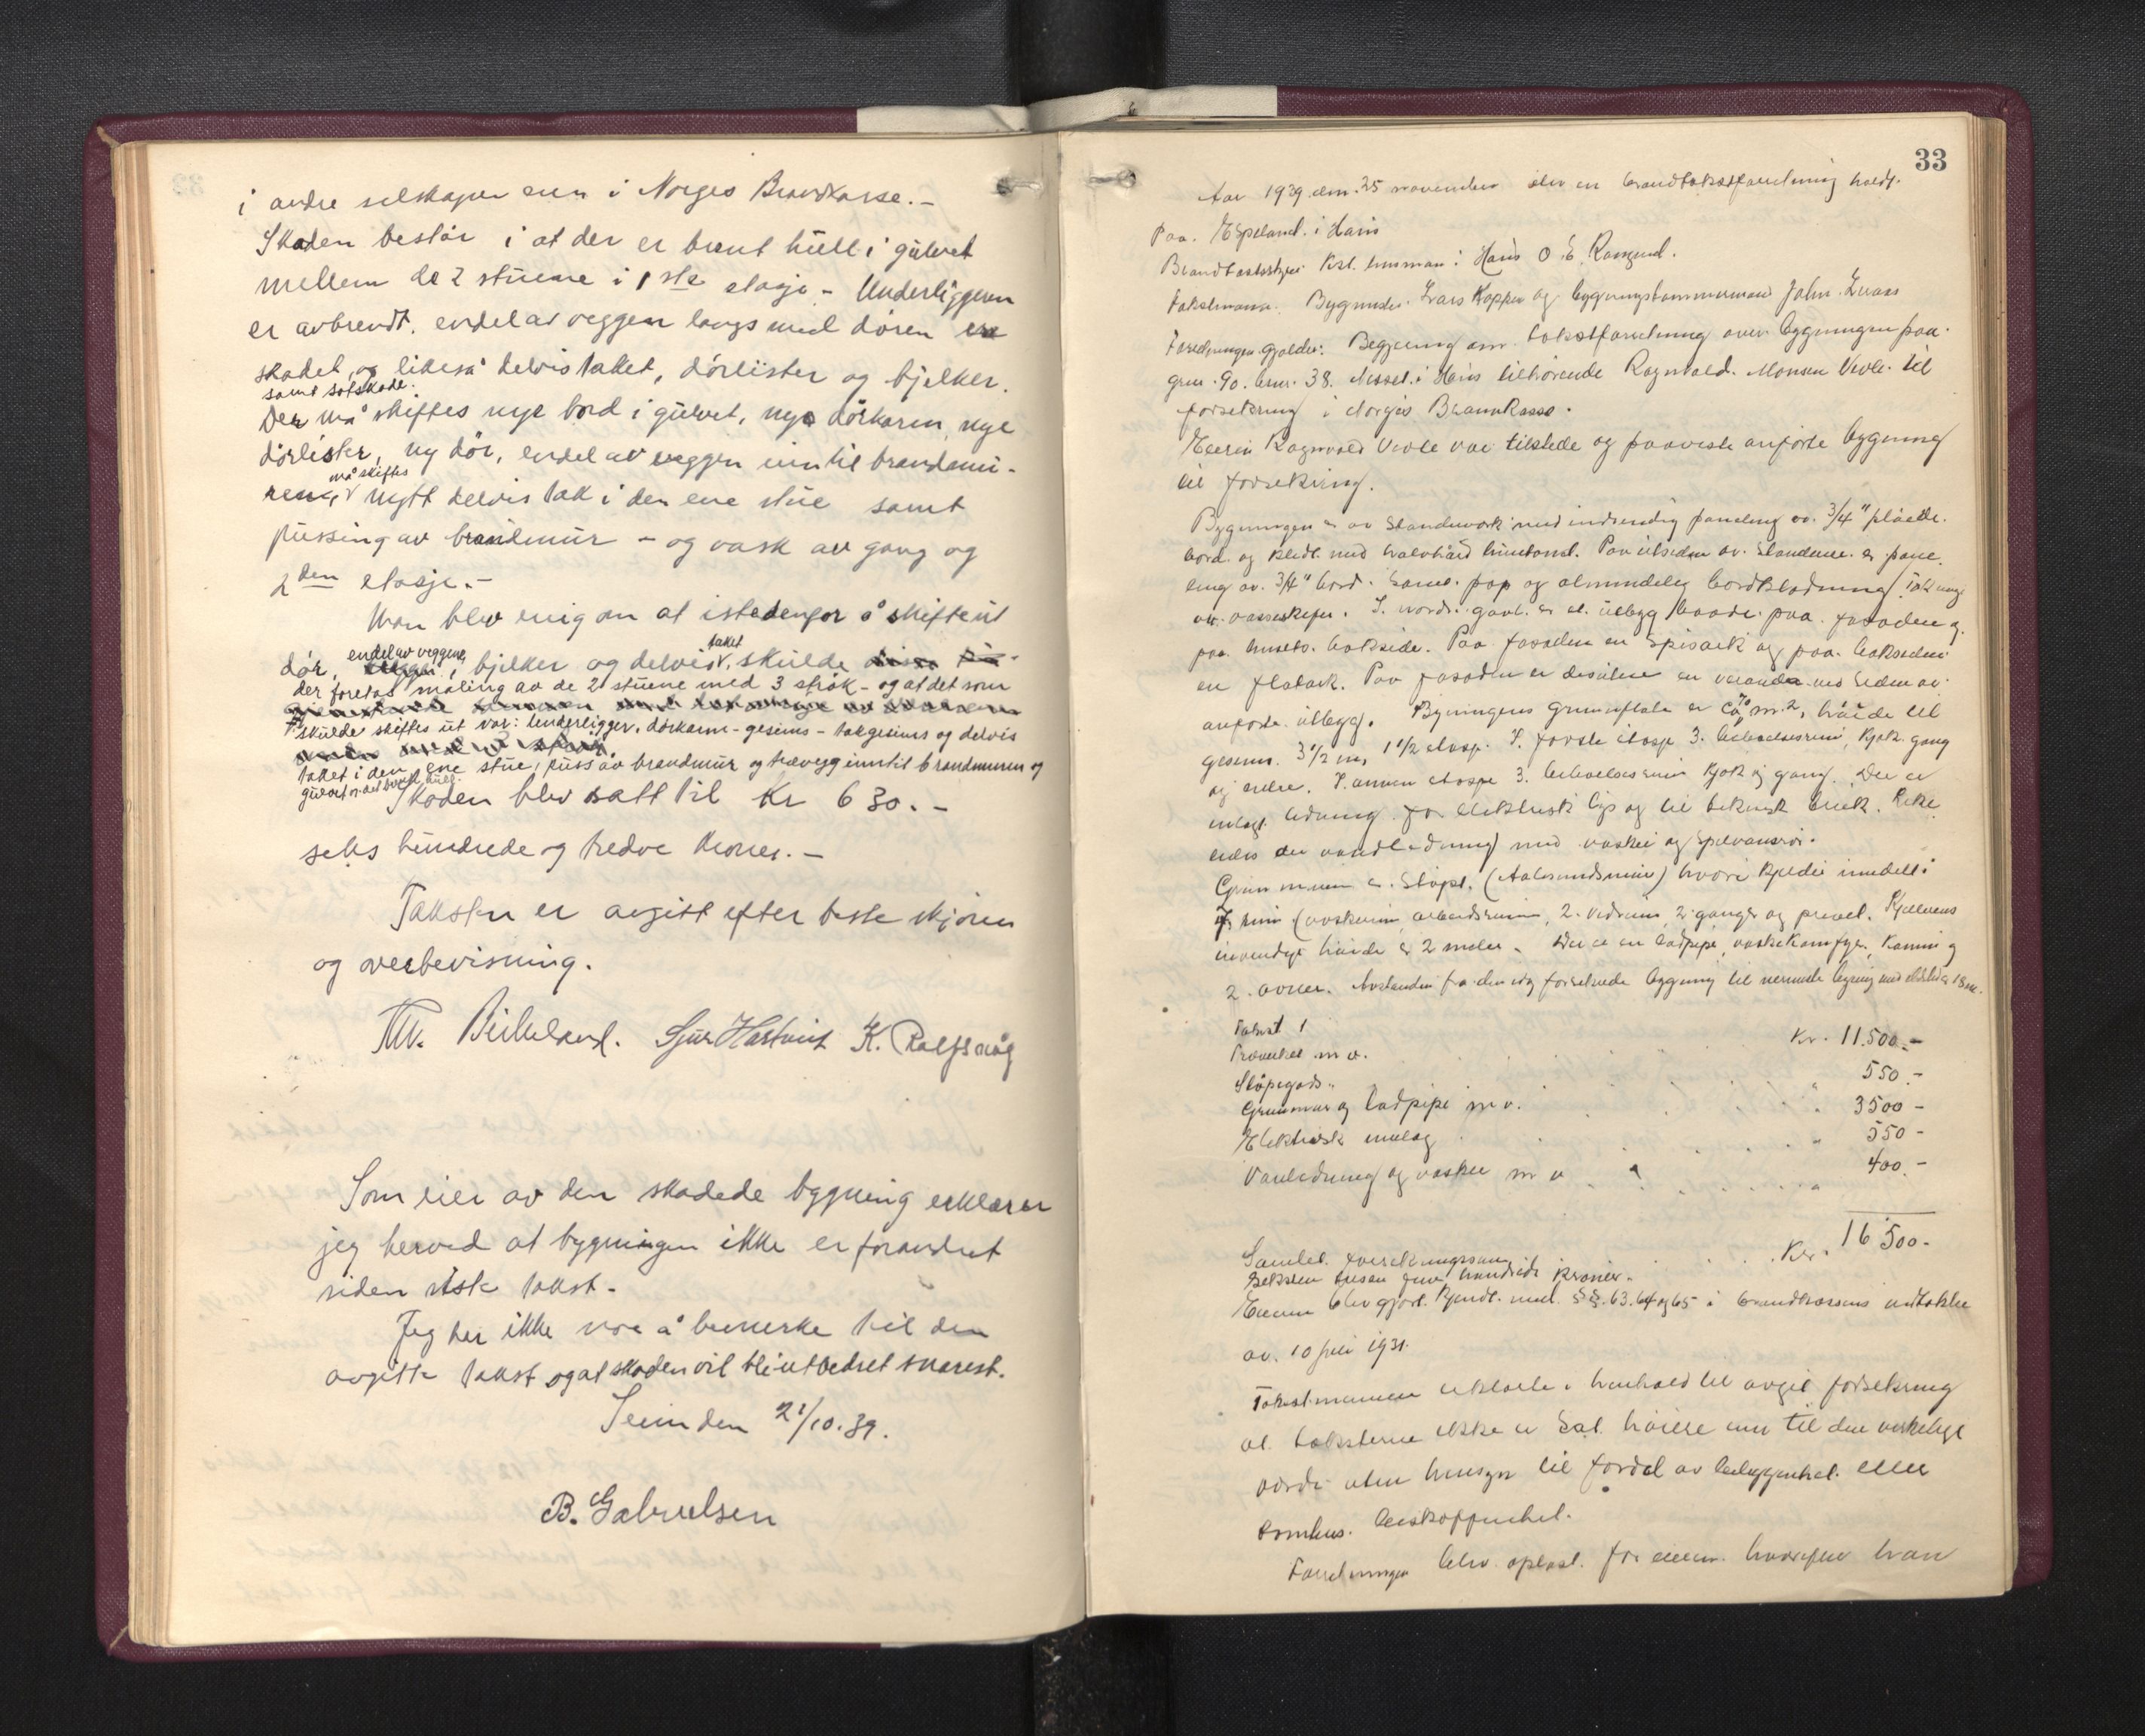 i andre selskaper enn i Norges Brandkasse.-
Skaden består i at der er brent hull i gulvet
mellem de 2 stuene i 1ste etasje - Underliggeren
er avbrendt. endel av veggen langs med døren er
skadet, og likeså delvis taket, dørlister og bjelker.
samt sotskade.
Der må skiftes nye bord i gulvet, nye dørkarm, nye
dørlister, ny dør, endel av veggen inn til brandmu-
ren, må skiftes nytt delvis tak i den ene stue samt
pussing av brandmur - og vask av gang og
2den etasje.-
Man blev enig om at istedenfor å skifte ut
dør, endel av veggene, bjelker og delvis taket skulde
der foretas maling av de 2 stuene med 3 strøk - og at det som
skulde skiftes ut var: Underligger, dørkarm - gesims - takgesims og delvis
taket i den ene stue, puss av brandmur og trevegg inntil brandmuren og
gulvet
Skaden blev satt til Kr 630.-
seks hundrede og tredve kroner.-
Taksten er avgitt efter beste skjønn
og overbevisning.
Birkeland. Sjur Hartveit K. Rolfsvåg
Som eier av den skadede bygning erklærer
jeg herved at bygningen ikke er forandret
siden siste takst.
Jeg har ikke noe å bemerke til den
avgitte takst og at skaden vil bli utbedret snarest.
Seim den 21/10.39.
B. Gabrielsen
33
Aar 1939 den. 25 november blev en brandtakstforretning holdt.
Paa. Espeland. i Haus
Brandtakstbestyrer lensman i Haus O. E.
Takstmænn. Bygmester. Lars Kopper og bygningstømmermand John
Forretningen gjelder: Begjæring om takstforretning over bygningen paa
gnr. 90. bnr. 38. Nesset i Haus tilhørende Ragnvald. Monsen Vevle. til
forsikring i Norges Brannkasse.
Eieren Ragnvald Vevle var tilstede og paaviste anførte bygning
til forsikring.
Bygningen er av standerverk med indvendig paneling av. 3/4" pløiede
bord. og kledt med halvhård
av. 3/4" bord. samt. pap og almindelig bordklædning.
I nordre gavl. er et utbygg baade paa fasaden og
paa husets bakside. Paa fasaden en spisark og paa baksiden
en flatark. Paa fasaden er desuten en veranda ved siden av
anførte utbygg. Bygningens grundflate er ca 70 m.2, høide til
gesims. 3 1/2 m, 1 1/2 etasje. I første etasje 3. beboelsesrum, kjøk. gang
og I annen etasje 3. beboelsesrum kjøk og gang. Der er
indlagt ledning for elektrisk lys og til teknisk bruk. Like
ledes er vandledning med vasker og spilvansrør.
Grunnmuren er. støpt. (Aalesundsmur) hvori kjelder inndelt i
7 rum (vaskerum, arbeidsrum, 2. vedrum, 2 ganger og privet. Kjellerens
invendige høide er 2 meter. Der er en ladpipe, vaskekomfyr, kamin og
2. ovner. Avstanden fra den nyforsikrede bygning til nermeste bygning med ildsted er 18 m.
Takst 1
Træverket m v. Kr. 11.500.-
Støpegods.. 550.-
Grunnmur og ladpipe m v. 3500 -
Elektrisk innlag 550 -
Vanledning og vasker m v 400.-
Samlet. forsikringssum Kr. 16 500.-
Seksten tusen fem hundrede kroner.
Eieren blev gjort kjendt med §§. 63. 64 og 65 i brandkassens vedtekter
av. 10 juli 1931.
Takstmennene erklærte i henhold til avgit forsikring
at. taksterne ikke er sat. høiere enn til den virkelige
værdi uten hensyn til fordel av beliggenhet. eller
beskaffenhet.
Forretningen blev oplest. for eieren. hvorefter han